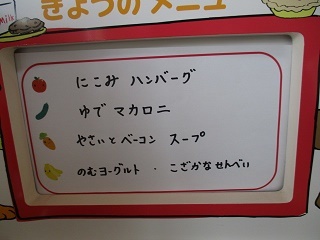 きょうのメニュー
Milk
にこみ ハンバーグ
ゆで マカロニ
やさいとベーコン スープ
のむヨーグルト ・ こざかなせんべい